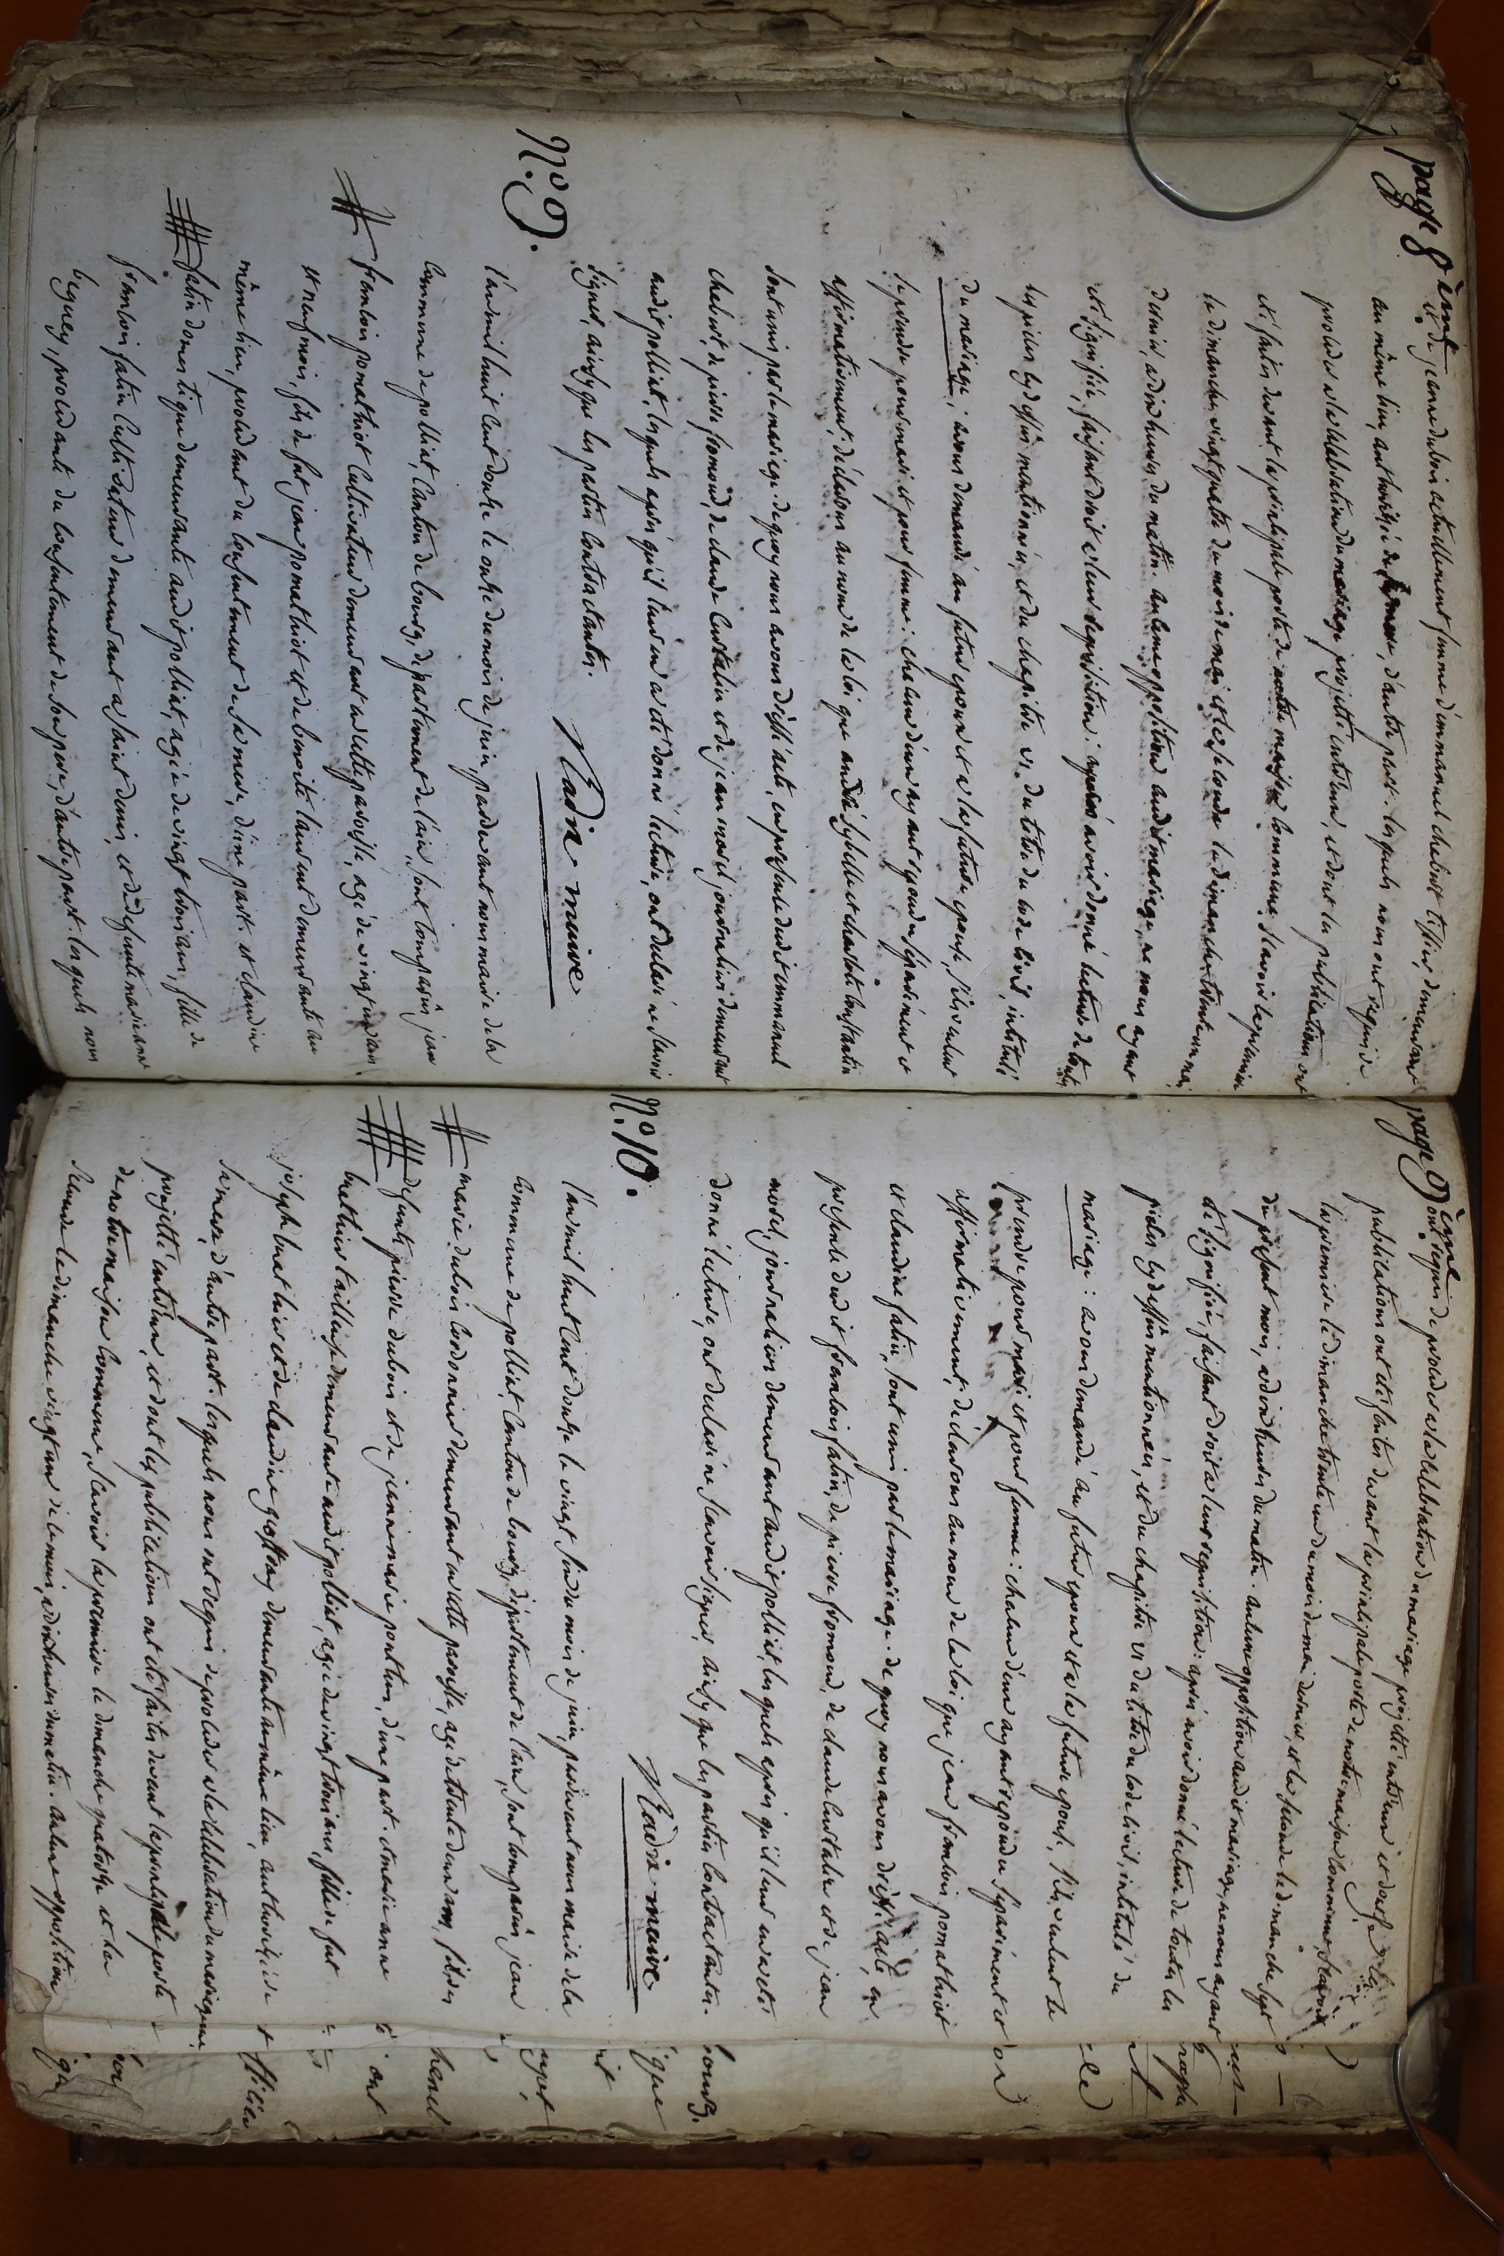 page 8ème
et de jeanne dubois actuellement femme d'emmanuel chabert tissier, demeurant
au même lieu, authorisée de sa mere, d'autre part. lesquels nous ont requis de
proceder a la celebration du mariage projetté entr'eux, et dont les publications ont
été faites devant la principale porte de notre maison commune. sçavoir la premiere
le dimanche vingt quatre du mois de mai et la seconde le dimanche trente un mai
dernier, a dix heures du matin. aucune opposition audit mariage, ne nous ayant
été signifiée, faisant droit a leur requisition: après avoir donné lecture de toutes
les pieces cy dessus mentionnées, et du chapitre VI. du titre du code civil, intitulé
du mariage, avons demandé au futur epoux et a la future epouse, s'ils veulent
se prendre pour mari et pour femme: chacun d'eux ayant repondu séparément et
affirmativement, déclarons au nom de la loi que andré sybelle et charlotte constantin
sont unis par le mariage. de quoy nous avons dressé acte, en presence dudit emmanuel
chabert, de pierre fromond, de claude Curtalin et de jean morel journaliers demeurant
audit polliat, lesquels après qu'il leur en a été donné lecture, ont declaré ne sçavoir
signer, ainsy que les parties contractantes.
Nadin maire
N.º 9.
L'an mil huit cent douze le onze du mois de juin, pardevant nous maire de la
commune de polliat, canton de bourg, département de l'ain, sont comparus jean
francois pomathiot cultivateur demeurant en cette paroisse, agé de vingt un ans
et neuf mois, fils de fut jean pomathiot et de benoite laurent demeurante au
même lieu, procedant du consentement de sa mere, d'une part. et claudine
fatin domestique demeurante audit polliat, agée de vingt trois ans, fille de
francois fatin cultivateur demeurant a saint denis, et de defunte marie anne
beguey, procedante du consentement de son pere, d'autre part. lesquels nous
page 9ème
ont requis de proceder a la celebration du mariage projetté entr'eux et dont les
publications ont été faites devant la principale porte de notre maison commune, sçavoir
la premiere le dimanche trente un du mois de mai dernier, et la seconde le dimanche sept
du present mois, a dix heures du matin. aucune opposition audit mariage, ne nous ayant
été signifiée, faisant droit a leur requisition: après avoir donné lecture de toutes les
pieces cy dessus mentionnées, et du chapitre VI du titre du code civil, intitulé du
mariage: avons demandé au futur epoux et a la future epouse, s'ils veulent se
prendre pour mari et pour femme: chacun d'eux ayant repondu séparément et
affirmativement, déclarons au nom de la loi que jean francois pomathiot
et claudine fatin, sont unis par le mariage. de quoy nous avons dressé acte, en
presence dudit francois fatin, de pierre fromond, de claude Curtalin et de jean
morel, journaliers demeurant audit polliat, lesquels après qu'il leur en a été
donné lecture, ont declaré ne sçavoir signer, ainsy que les parties contractantes.
Nadin maire
N.º 10.
L'an mil huit cent douze le vingt six du mois de juin, pardevant nous maire de la
commune de polliat, canton de bourg, département de l'ain, sont comparus jean
marie dubois cordonnier demeurant en cette paroisse, agé de trente deux ans, fils de
defunts pierre dubois et de jeanne marie ponthus, d'une part. et marie anne
bathier tailleuse demeurante audit polliat, agée de vingt trois ans, fille de fut
joseph bathier et de claudine goffray demeurante au même lieu, authorisée de
sa mere, d'autre part. lesquels nous ont requis de proceder a la celebration du mariage
projetté entr'eux, et dont les publications ont été faites devant la principale porte
de notre maison commune, sçavoir la premiere le dimanche quatorze et la
seconde le dimanche vingt un de ce mois, a dix heures du matin. aucune opposition